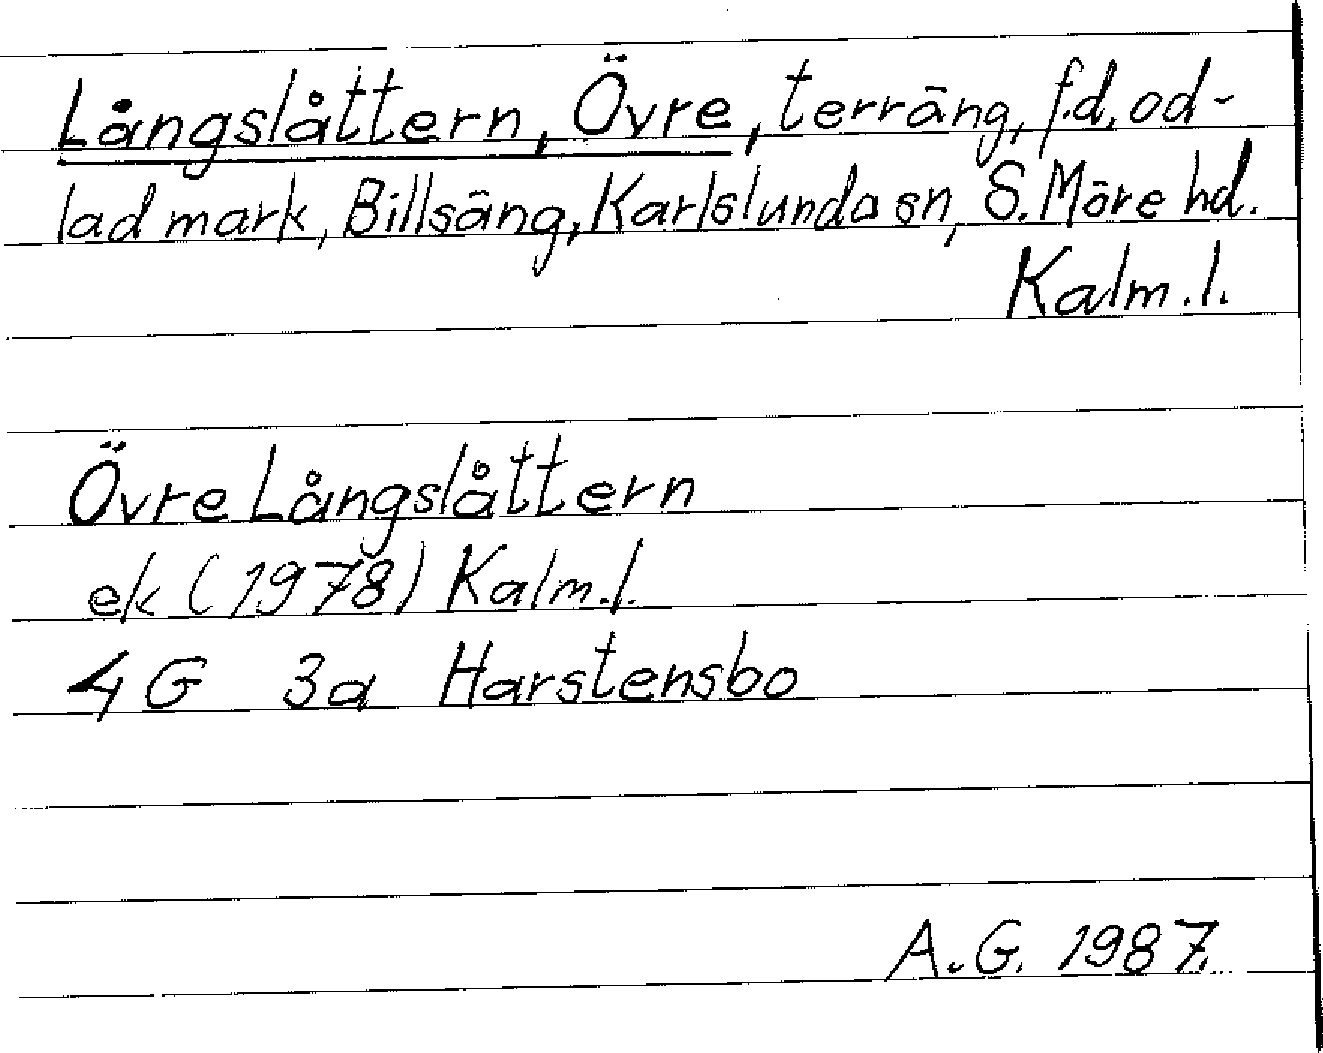 Långslåttern, Övre, terräng, f.d. od-
lad mark, Billsäng, Karlslunda sn, S. Möre hd.
Kalm. l.
Övre Långslåttern
ek (1978) Kalm. l.
4 G 3a Harstensbo
A. G. 1987.